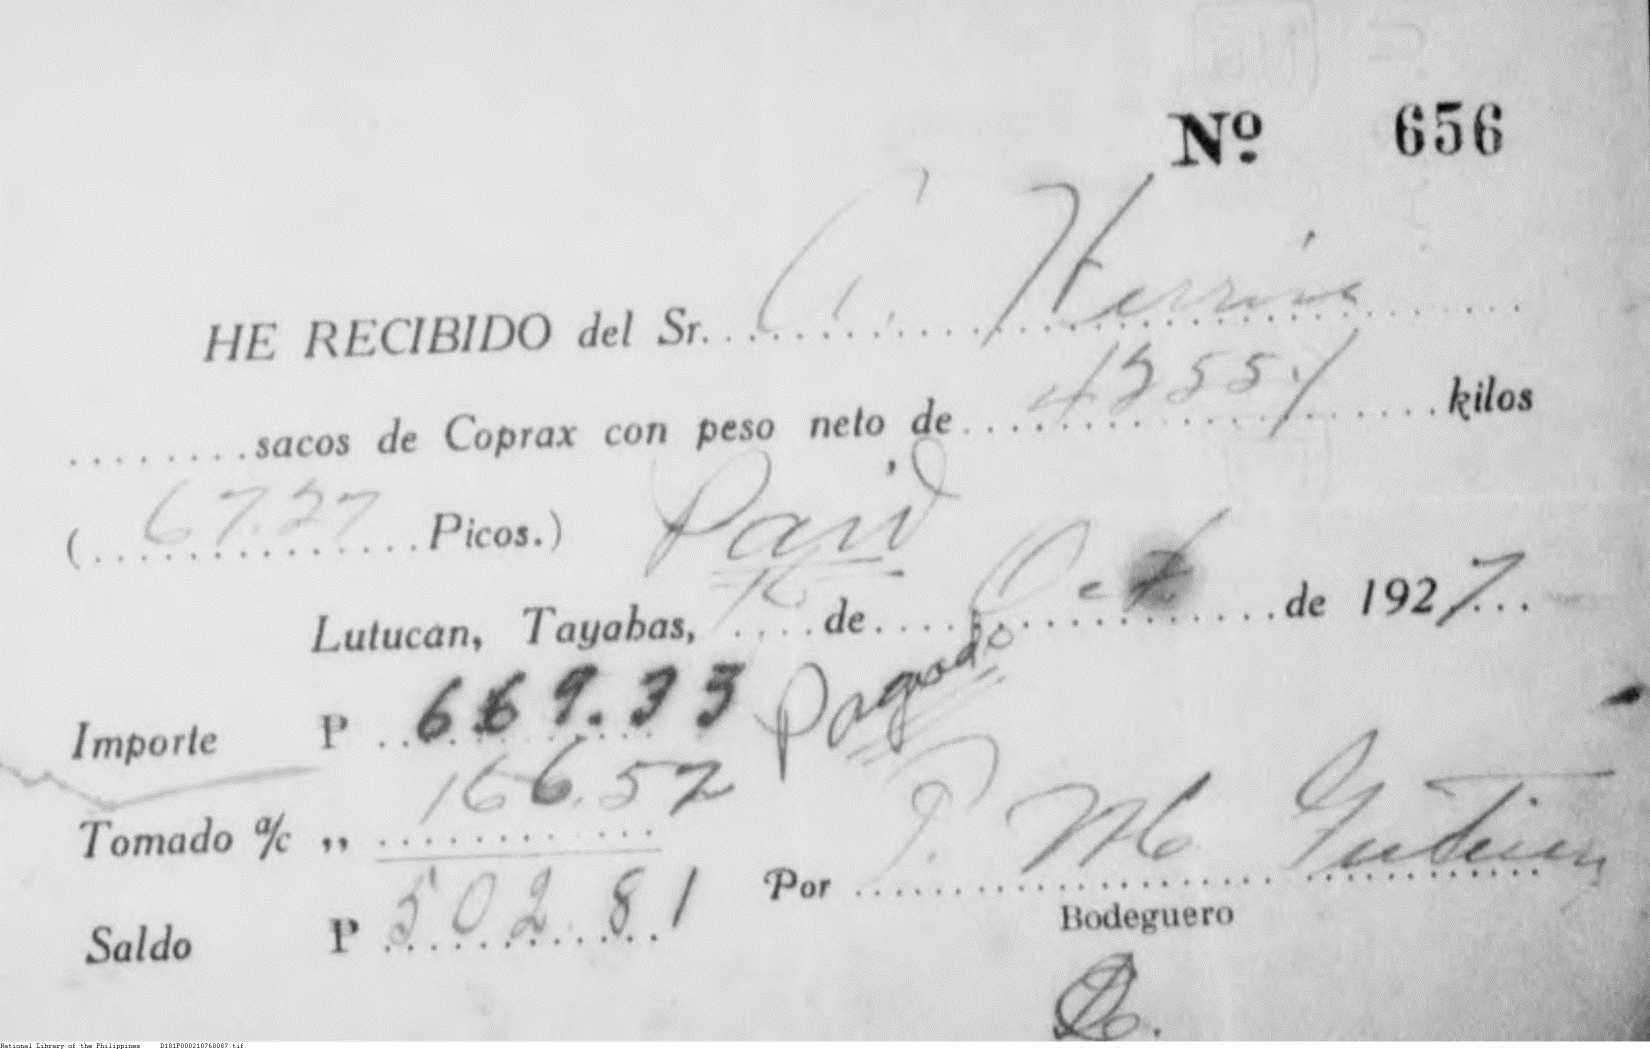 Nº 656
HE RECIBIDO del Sr. A. Herrera
sacos de Coprax con peso neto de kilos
( 67.27 Picos.) Paid
Lutucan, Tayabas, 16 de Oct de 1927
Importe P 669.33 Pagado
Tomado a/c ,, 166.52
Saldo P 502.81 Por P. M. Gutierrez
Bodeguero
National Library of the Philippines D101P000210760007.tif